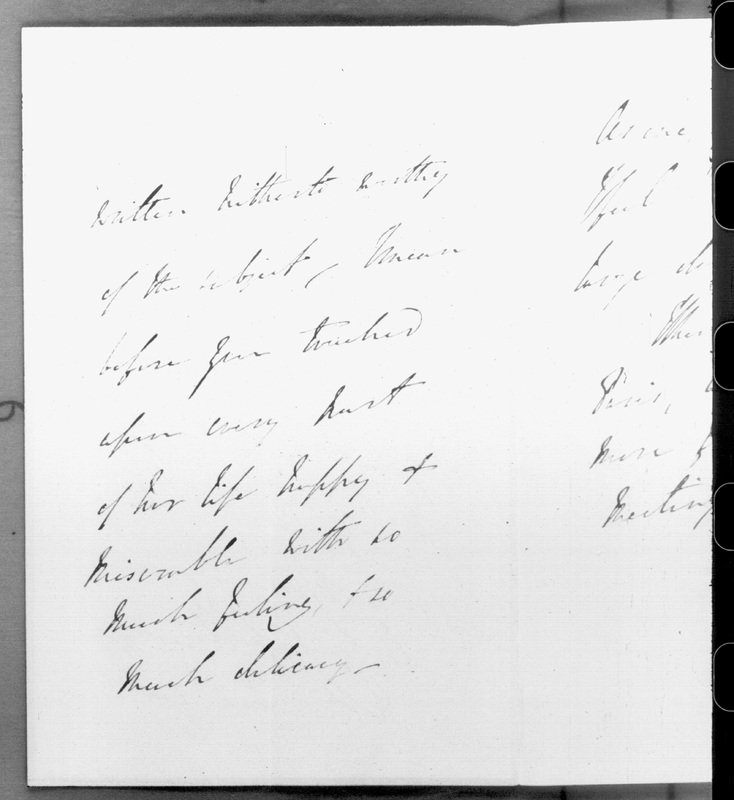 written hitherto worthy
of the subject, I mean
before you touched
upon every part
of her life happy &
miserable with so
much feeling, & so
much delicacy —
As one
I feel
large
When
Paris,
more
meeting